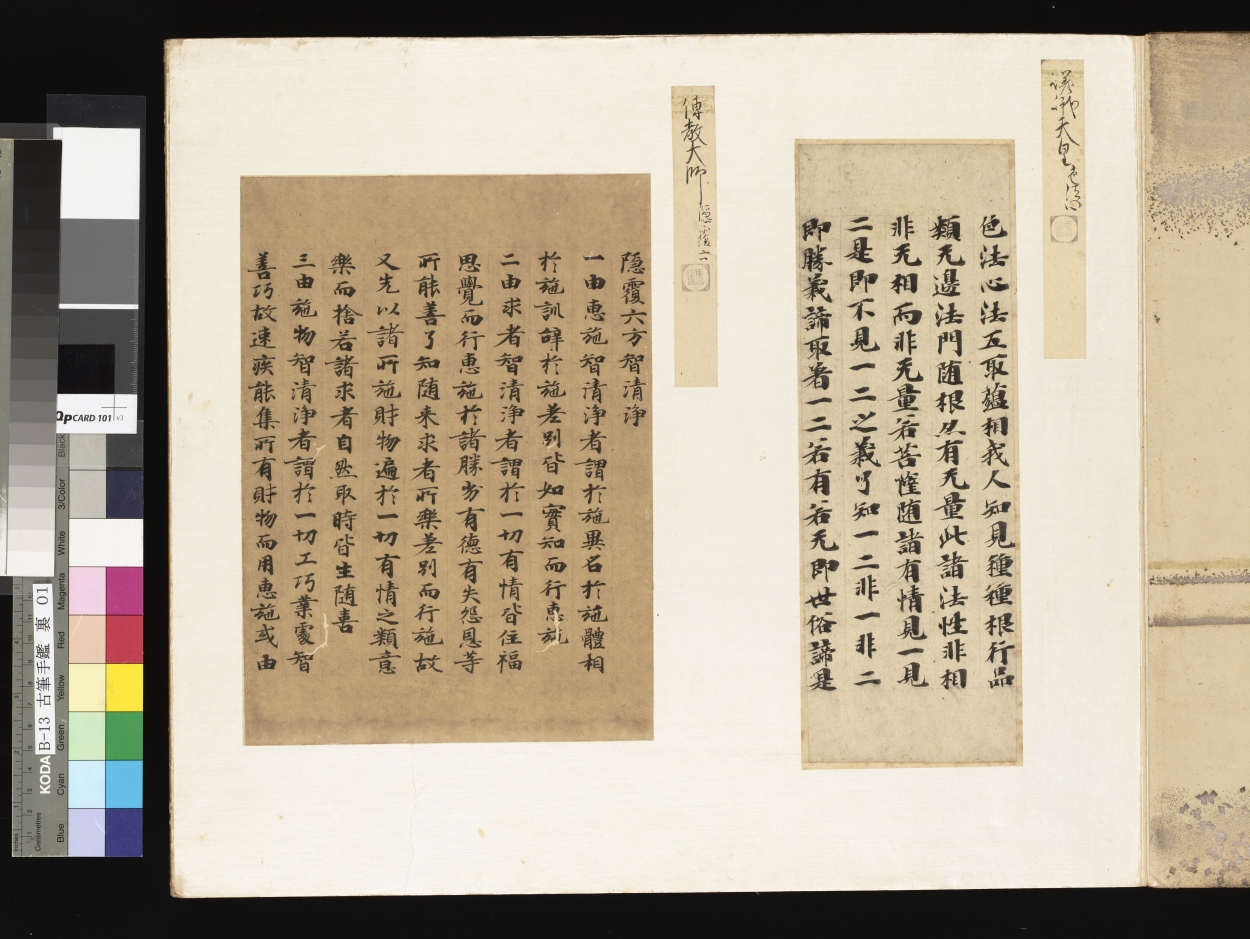 嵯峨天皇 色法心
色法心法五取蘊相我人知見種種根行品
類无邊法門随根亦有无量此諸法性非相
非无相而非无量若菩薩随諸有情見一見
二是即不見一二之義了知一二非一非二
即勝義諦取著一二若有若无即世俗諦是
傳教大師 隠覆六
隠覆六方智清浄
一由恵施智清浄者謂於施異名於施體相
於施訓辞於施差別皆如實知而行恵施
二由求者智清浄者謂於一切有情皆住福
思覺而行恵施於諸勝劣有德有失怨恩等
所能善了知随来求者所樂差別而行施故
又先以諸所施財物遍於一切有情之類意
樂而捨若諸求者自然取時皆生随喜
三由施物智清浄者謂於一切工巧業處智
善巧故速疾能集所有財物而用恵施或由
QPCARD 101 v3
KODA
B-13 古筆手鑑 裏 01
Black
3/Color
White
Magenta
Red
Yellow
Green
Cyan
Blue
Centimetres
Inches